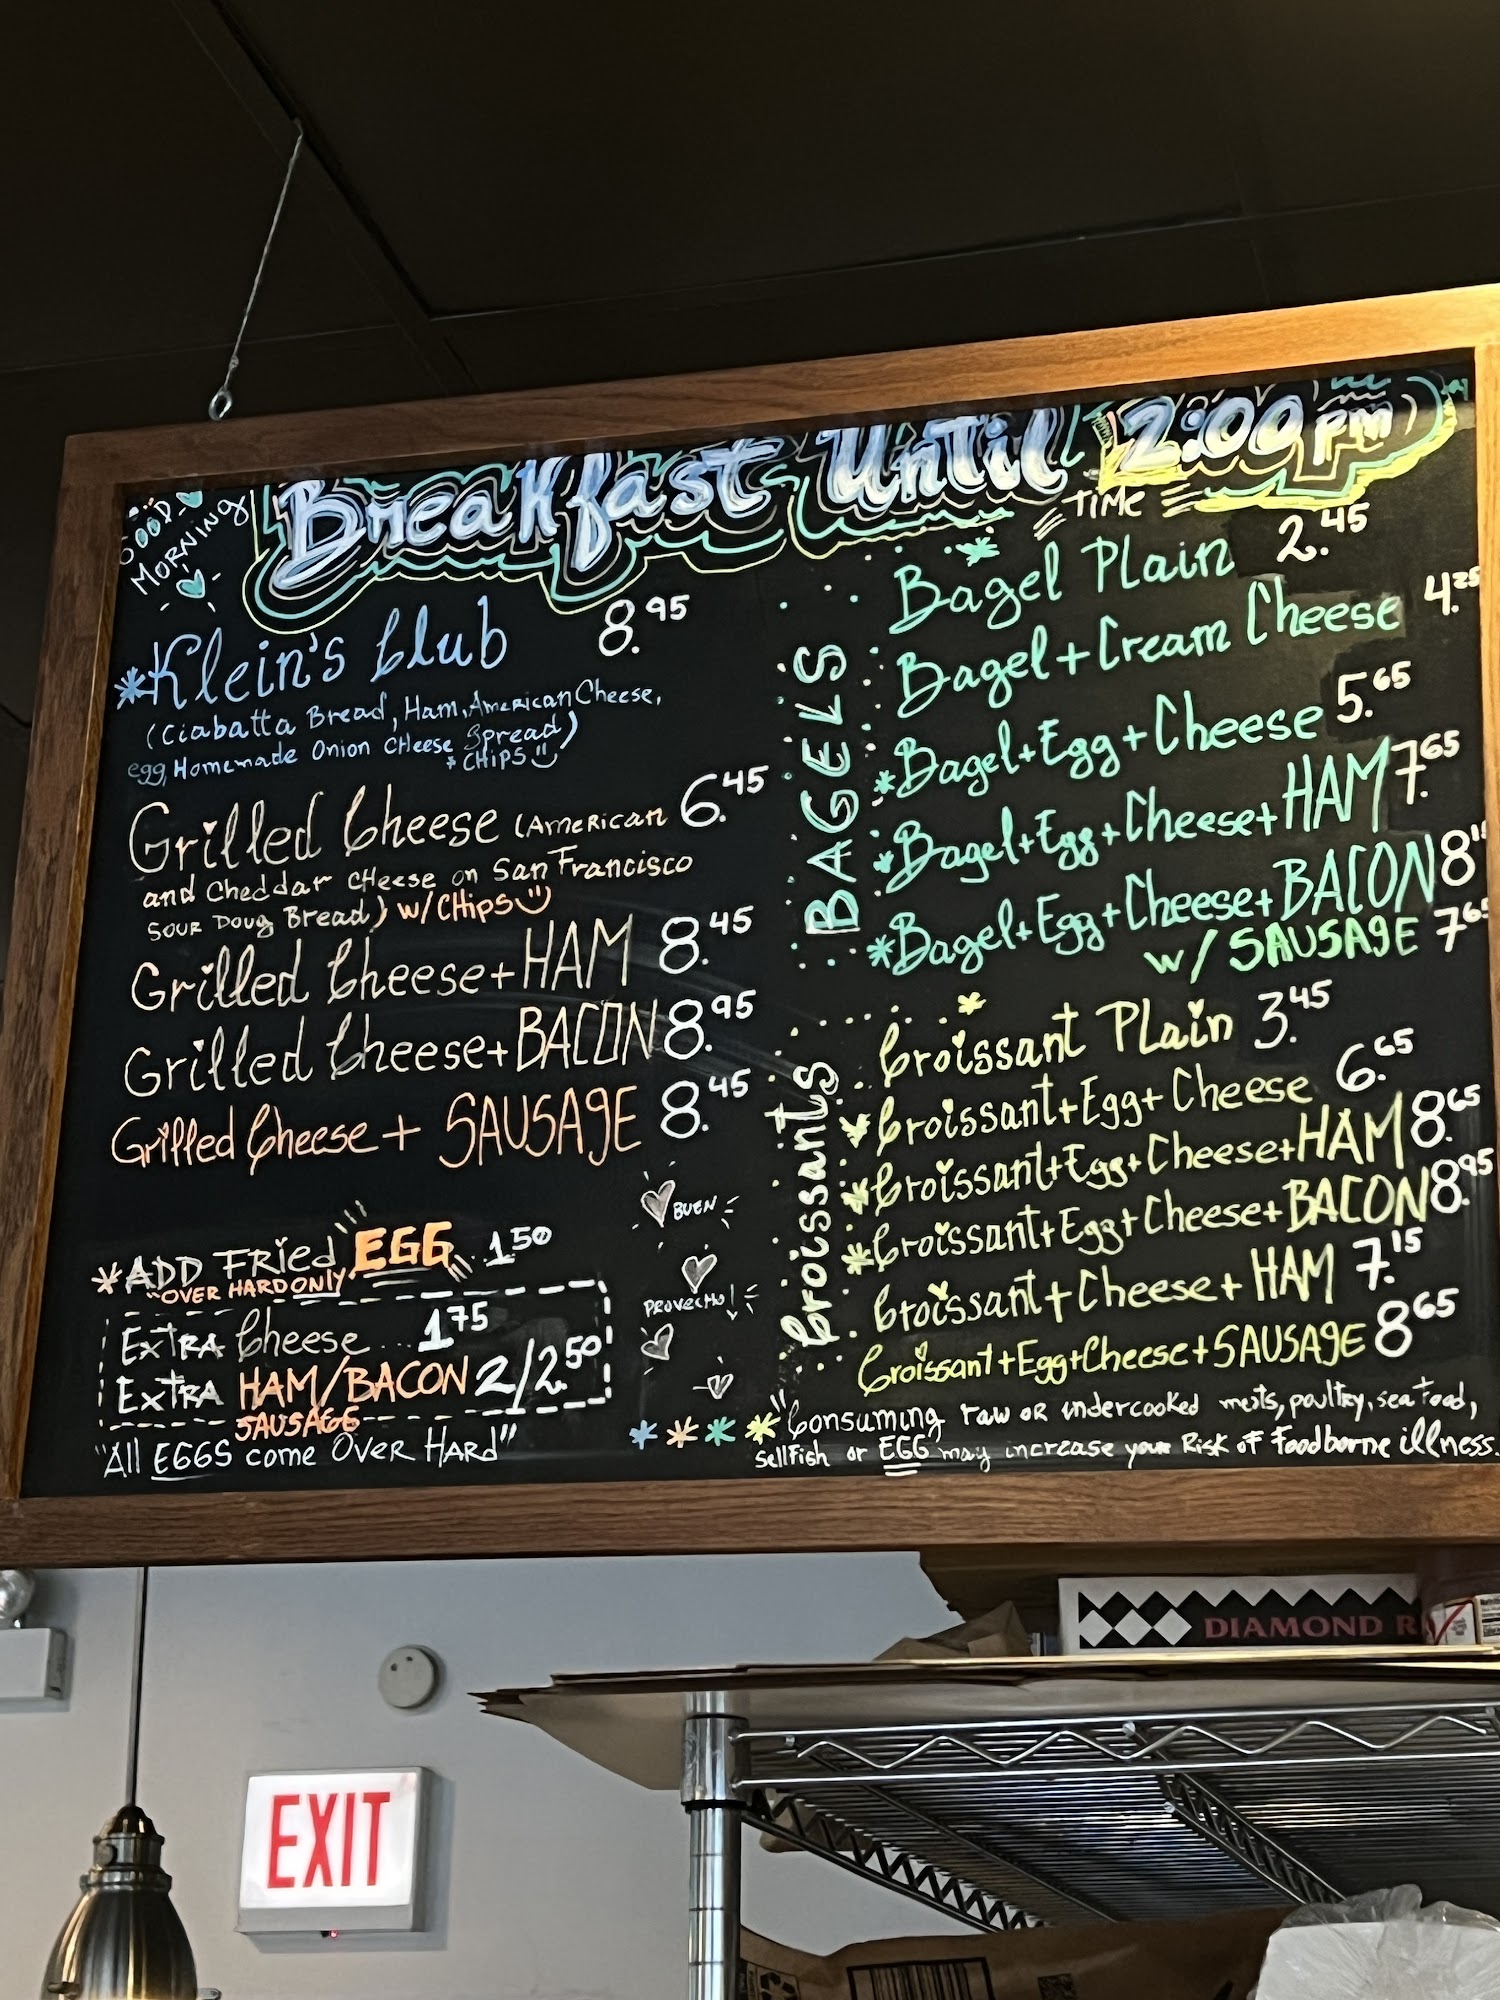 GOOD
MORNING
Breakfast Until 2:00 pm
TIME
*Klein's Club 8.95
(Ciabatta Bread, Ham, American Cheese,
egg, Homemade Onion Cheese Spread)
+ CHIPS
Grilled Cheese (American 6.45
and Cheddar Cheese on San Francisco
Sour Doug Bread) w/CHIPS
Grilled Cheese + HAM 8.45
Grilled Cheese + BACON 8.95
Grilled Cheese + SAUSAGE 8.45
*ADD Fried EGG 1.50
"OVER HARD ONLY"
Extra Cheese... 1.75
Extra HAM/BACON 2/2.50
SAUSAGE
"All EGGS come Over Hard"
BUEN
PROVECHO!
BAGELS
Bagel Plain 2.45
Bagel + Cream Cheese 4.25
*Bagel + Egg + Cheese 5.65
*Bagel + Egg + Cheese + HAM 7.65
*Bagel + Egg + Cheese + BACON 8
w/ SAUSAGE 7.65
Croissants
Croissant Plain 3.45
*Croissant + Egg + Cheese 6.65
*Croissant + Egg + Cheese + HAM 8.65
*Croissant + Egg + Cheese + BACON 8.95
Croissant + Cheese + HAM 7.15
Croissant + Egg + Cheese + SAUSAGE 8.65
****"Consuming raw or undercooked meats, poultry, sea food,
Sellfish or EGG may increase your Risk of Foodborne illness.
DIAMOND
EXIT